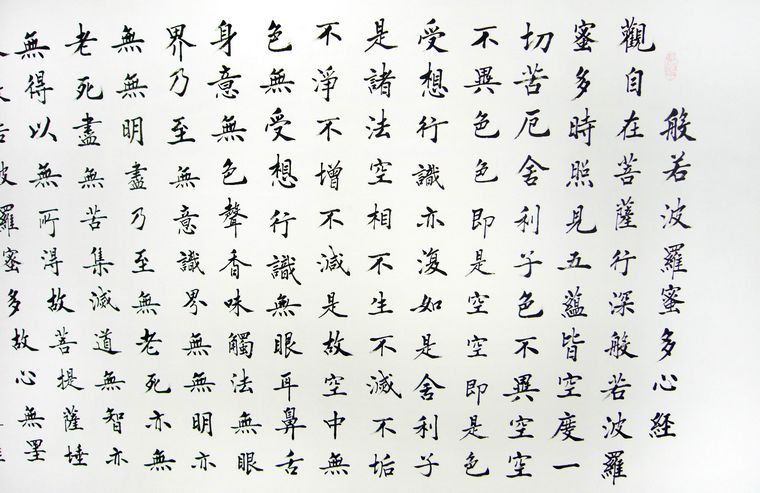 般若波羅蜜多心経
觀自在菩薩行深般若波羅
蜜多時照見五蘊皆空度一
切苦厄舍利子色不異空空
不異色色即是空空即是色
受想行識亦復如是舍利子
是諸法空相不生不滅不垢
不淨不增不減是故空中無
色無受想行識無眼耳鼻舌
身意無色聲香味觸法無眼
界乃至無意識界無無明亦
無無明盡乃至無老死亦無
老死盡無苦集滅道無智亦
無得以無所得故菩提薩埵
波羅蜜多故心無罣